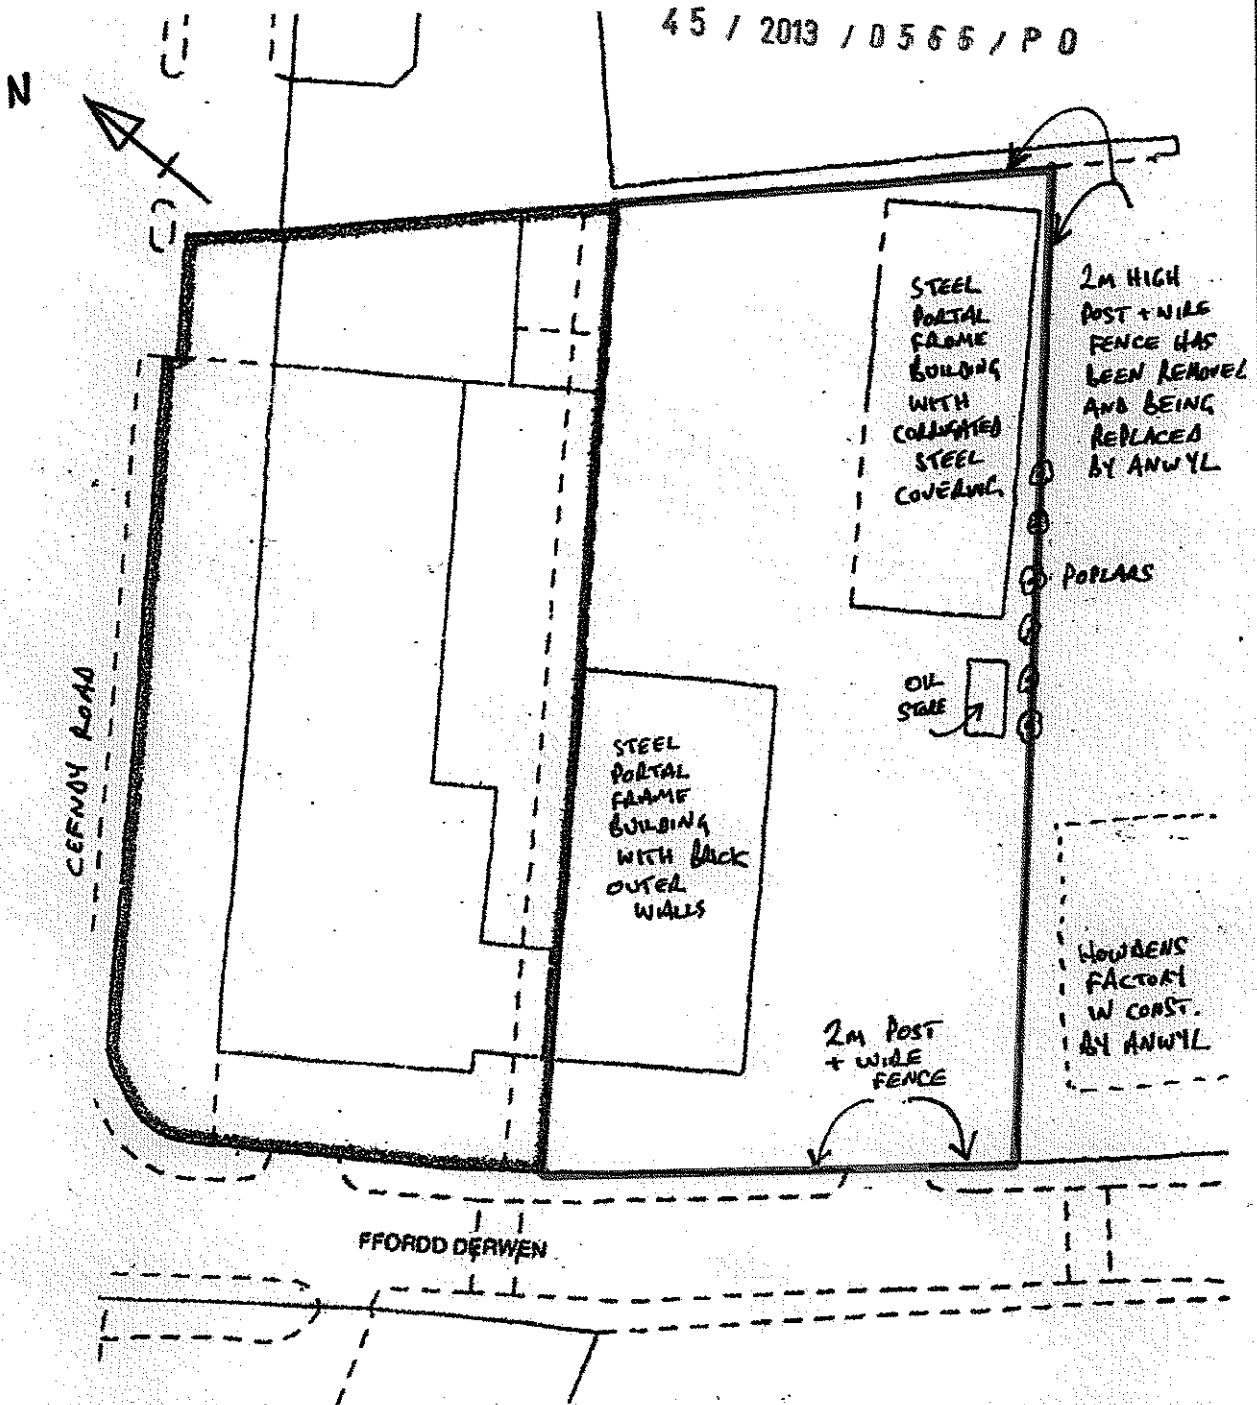 45 / 2013 / 0566 / PO
N
STEEL
PORTAL
FRAME
BUILDING
WITH
CORRUGATED
STEEL
COVERING
2M HIGH
POST + WIRE
FENCE HAS
BEEN REMOVED
AND BEING
REPLACED
BY ANWYL
POPLARS
OIL
STORE
CEFNDY ROAD
STEEL
PORTAL
FRAME
BUILDING
WITH BRICK
OUTER
WALLS
HOWDENS
FACTORY
IN CONST.
BY ANWYL
2M POST
+ WIRE
FENCE
FFORDD DERWEN